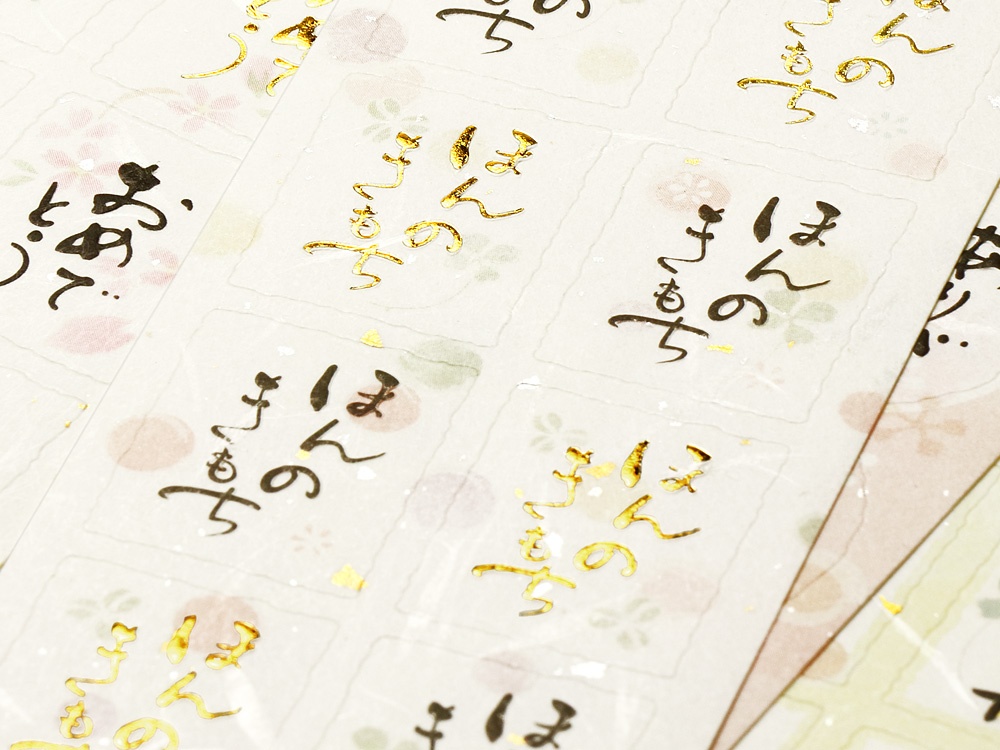 の
ち
んの
きもち
ほんの
きもち
おめで
とう
ほんの
きもち
ほんの
きもち
ほんの
きもち
ほんの
きも
ほ
き